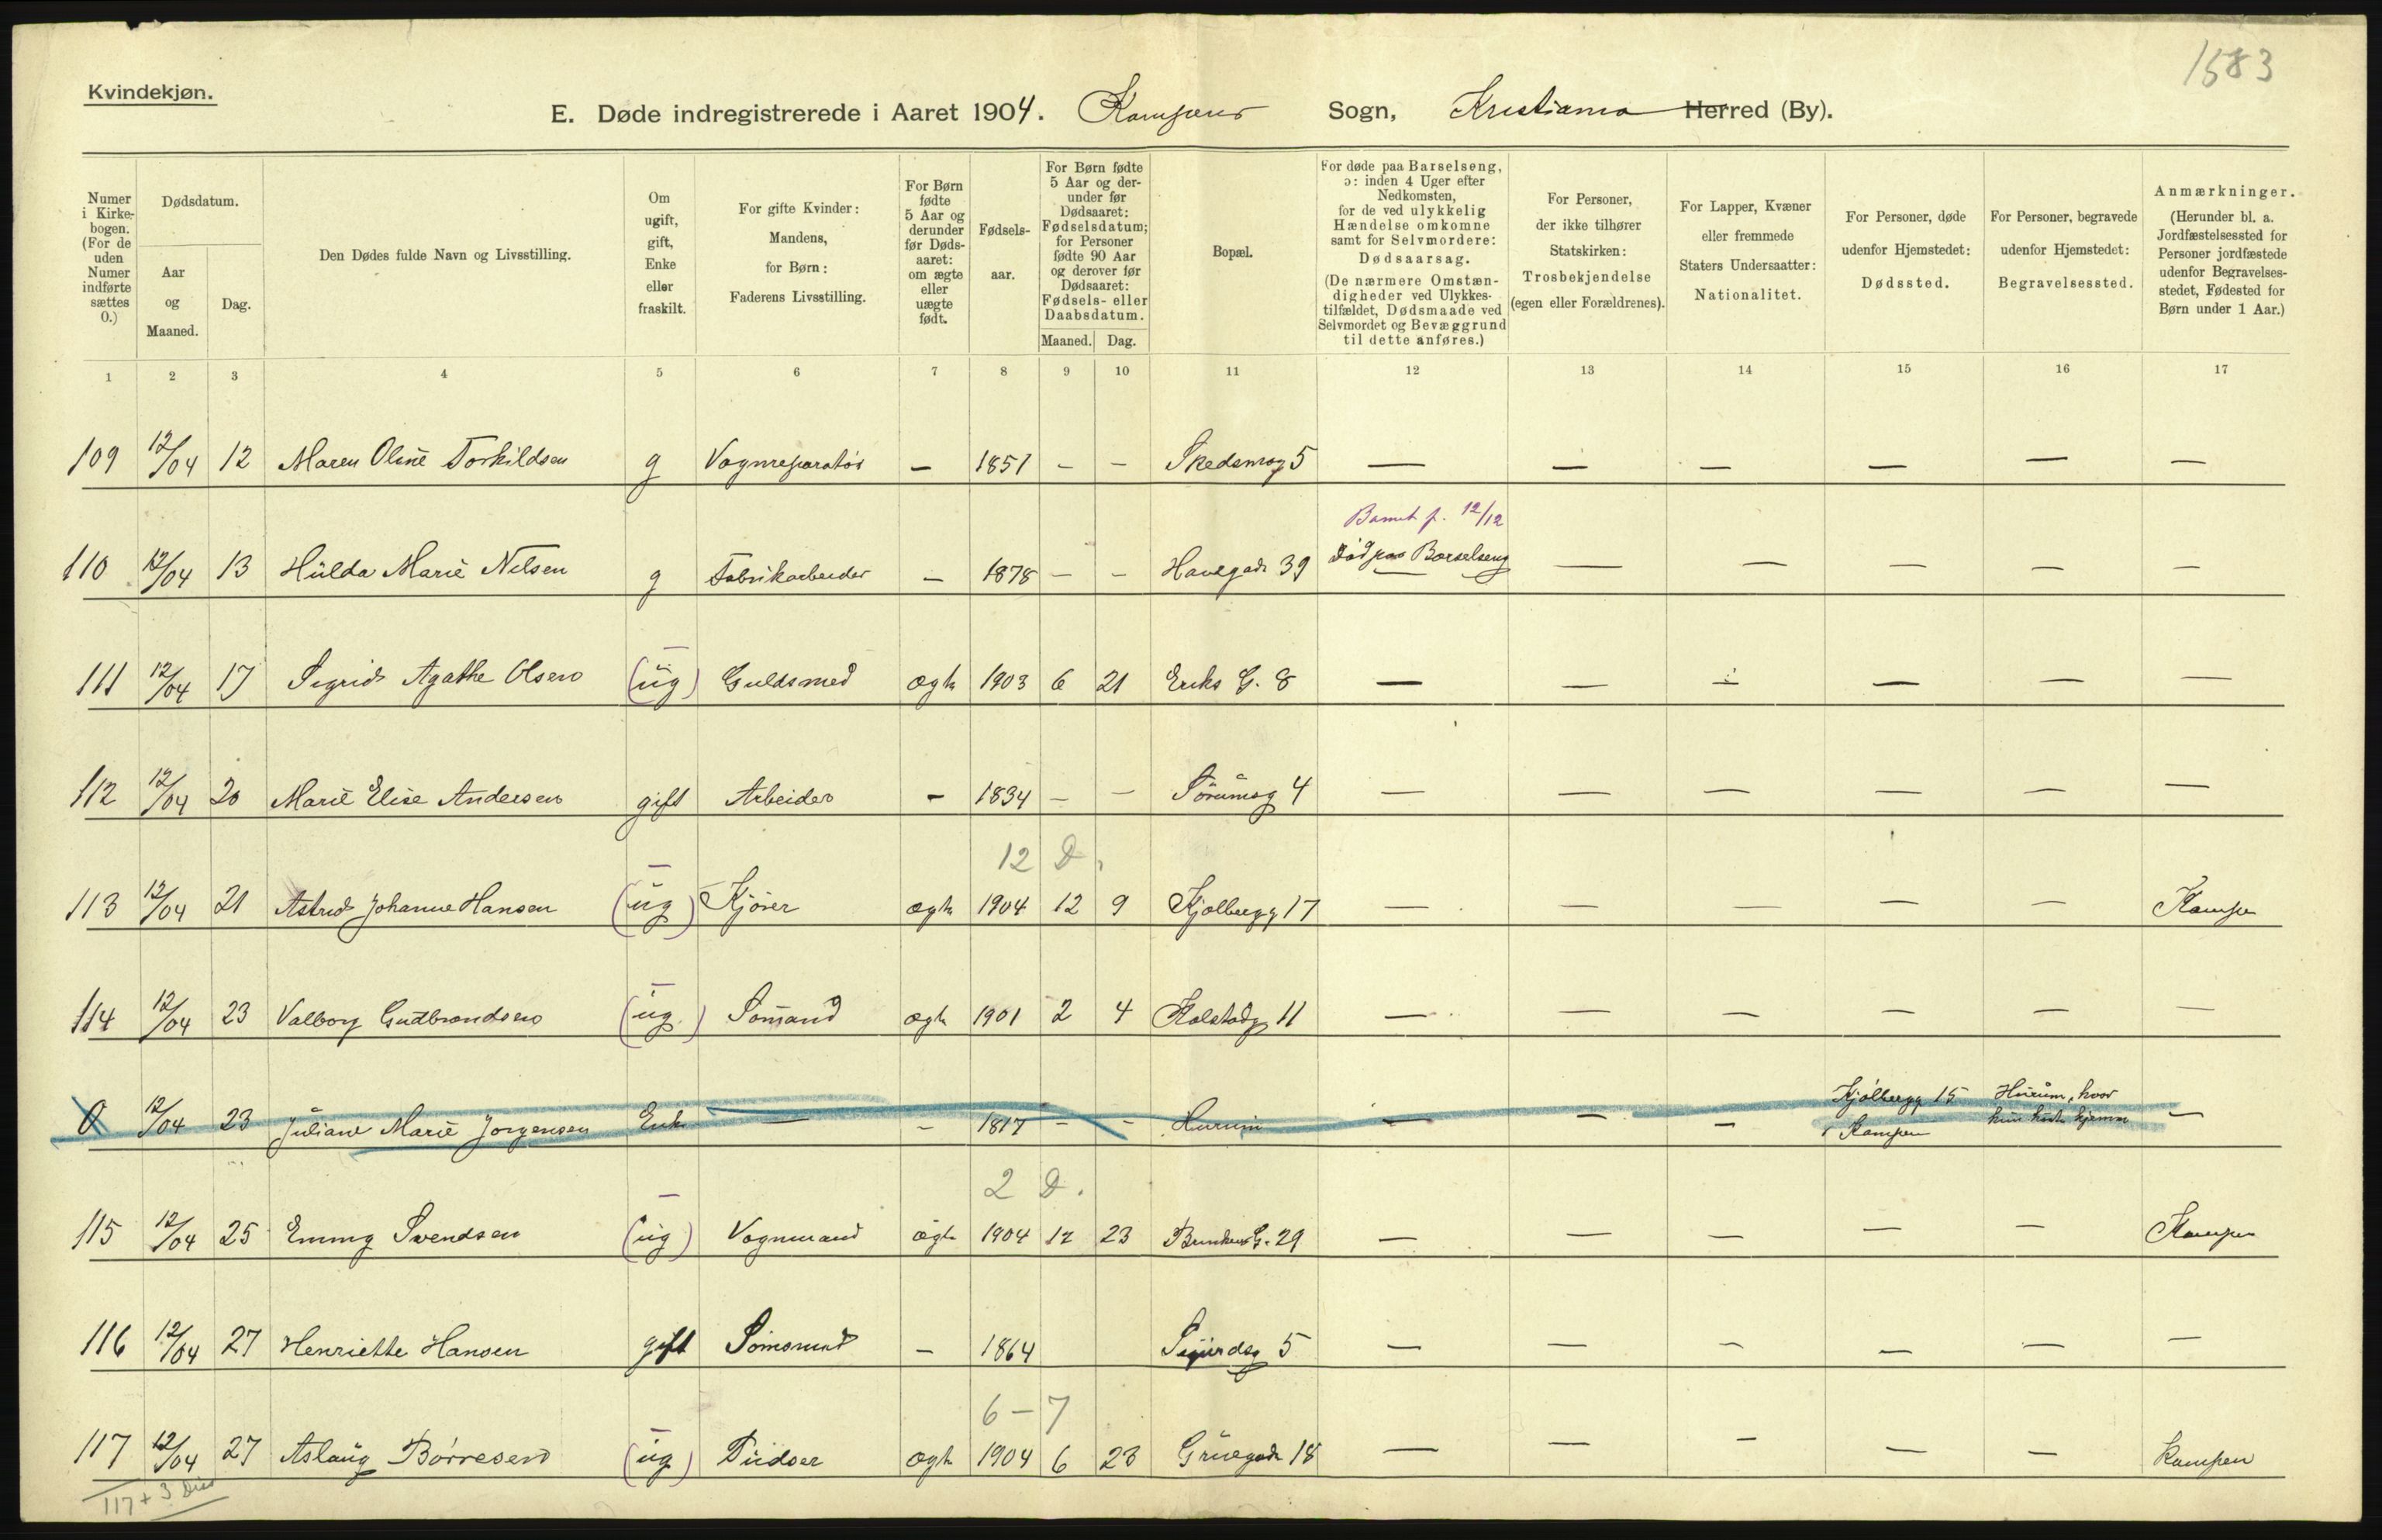 1583
Kvindekjøn.
E. Døde indregistrerede i Aaret 1904. Kampens Sogn, Kristiania Herred (By).
Numer i Kirkebogen. (For de uden Numer indførte sættes 0.)
Dødsdatum.
Aar og Maaned.
Dag.
Den Dødes fulde Navn og Livsstilling.
Om ugift, gift, Enke eller fraskilt.
For gifte Kvinder: Mandens, for Børn: Faderens Livsstilling.
For Børn fødte 5 Aar og derunder før Dødsaaret: om ægte eller uægte født.
Fødselsaar.
For Børn fødte 5 Aar og derunder før Dødsaaret: Fødselsdatum; for Personer fødte 90 Aar og derover før Dødsaaret: Fødsels- eller Daabsdatum.
Maaned. Dag.
Bopæl.
For døde paa Barselseng, ɔ: inden 4 Uger efter Nedkomsten, for de ved ulykkelig Hændelse omkomne samt for Selvmordere: Dødsaarsag. (De nærmere Omstændigheder ved Ulykkestilfældet, Dødsmaade ved Selvmordet og Bevæggrund til dette anføres.)
For Personer, der ikke tilhører Statskirken: Trosbekjendelse (egen eller Forældrenes).
For Lapper, Kvæner eller fremmede Staters Undersaatter: Nationalitet.
For Personer, døde udenfor Hjemstedet: Dødssted.
For Personer, begravede udenfor Hjemstedet: Begravelsessted.
Anmærkninger. (Herunder bl. a. Jordfæstelsessted for Personer jordfæstede udenfor Begravelsesstedet, Fødested for Børn under 1 Aar.)
1 2 3 4 5 6 7 8 9 10 11 12 13 14 15 16 17
109 12/04 12 Maren Oline Torkildsen g Vognreparatør — 1851 - - Skedsmog 5 — — — — — —
Barnet f. 12/12
110 12/04 13 Hulda Marie Nilsen g Fabrikarbeider — 1878 - - Havegade 39 død paa Barselseng — — — — —
111 12/04 17 Sigrid Agathe Olsen (ug) Guldsmed ægte 1903 6 21 Eriks G. 8 — — — — — —
112 12/04 20 Marie Elise Andersen gift Arbeider - 1834 - - Sørumsg 4 — — — — — —
12 D.
113 12/04 21 Astrid Johanne Hansen (ug) Kjører ægte 1904 12 9 Kjølbergg 17 — — — — — Kampen
114 12/04 23 Valborg Gudbrandsen (ug.) Sømand ægte 1901 2 4 Kolstadg 11 — — — — — —
0 12/04 23 Juliane Marie Jørgensen Enke — - 1817 - - Hurum — — — Kjølbergg 15 Kampen Hurum, hvor hun hørte hjemme —
2 D.
115 12/04 25 Emmy Svendsen (ug) Vognmand ægte 1904 12 23 G. 29 — — — — — Kampen
116 12/04 27 Henriette Hansen gift Sømand — 1864 Sigurdsg 5 — — — — — —
6 - 7
117 12/04 27 Aslaug Børresen (ug) Pudser ægte 1904 6 23 Grüegade 18 — — — — — Kampen
117 + 3